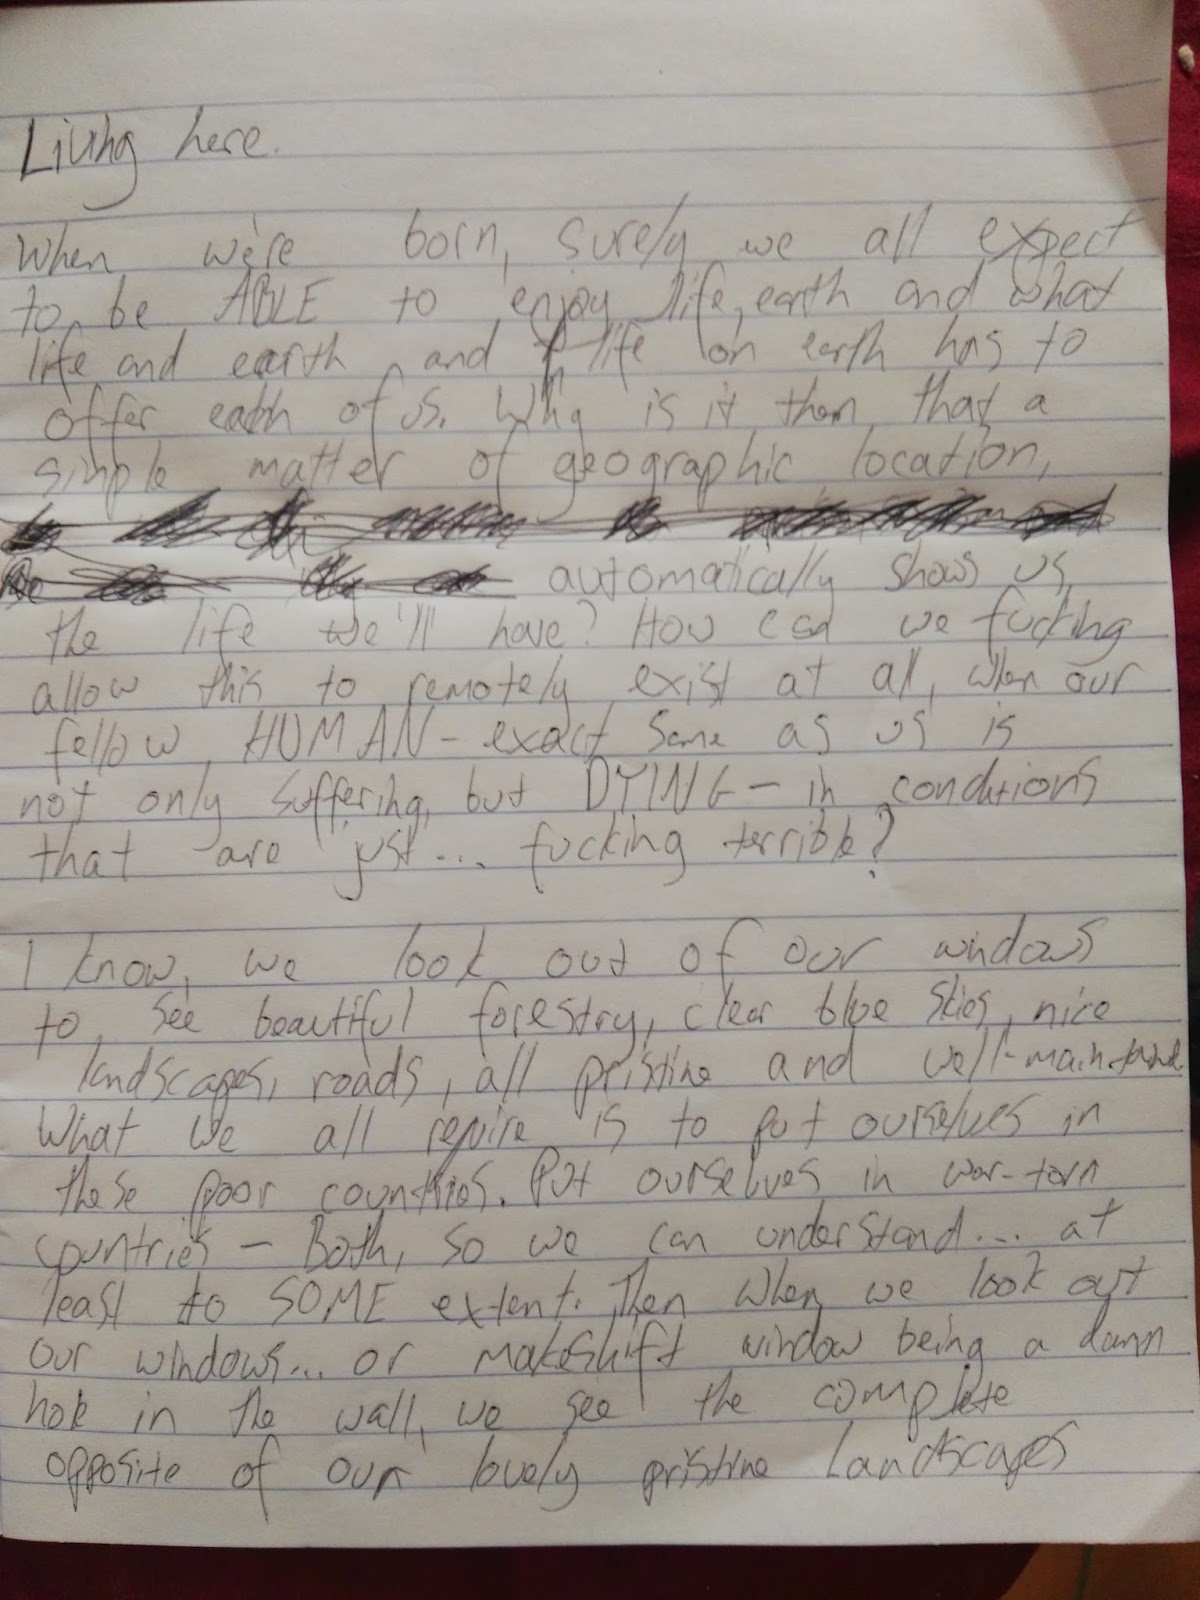 Living here.
When we're born, surely we all expect
to be ABLE to enjoy life, earth and what
life and earth, and life on earth has to
offer each of us. Why is it then, that a
simple matter of geographic location,
automatically shows us
the life we'll have? How can we fucking
allow this to remotely exist at all, when our
fellow HUMAN - exact same as us is
not only suffering, but DYING - in conditions
that are just... fucking terrible?
I know, we look out of our windows
to see beautiful forestry, clear blue skies, nice
landscapes, roads, all pristine and well-maintained
What we all require is to put ourselves in
these poor countries. Put ourselves in war-torn
countries - Both, so we can understand... at
least to SOME extent. Then when we look out
our windows... or makeshift window being a damn
hole in the wall, we see the complete
opposite of our lovely pristine landscapes